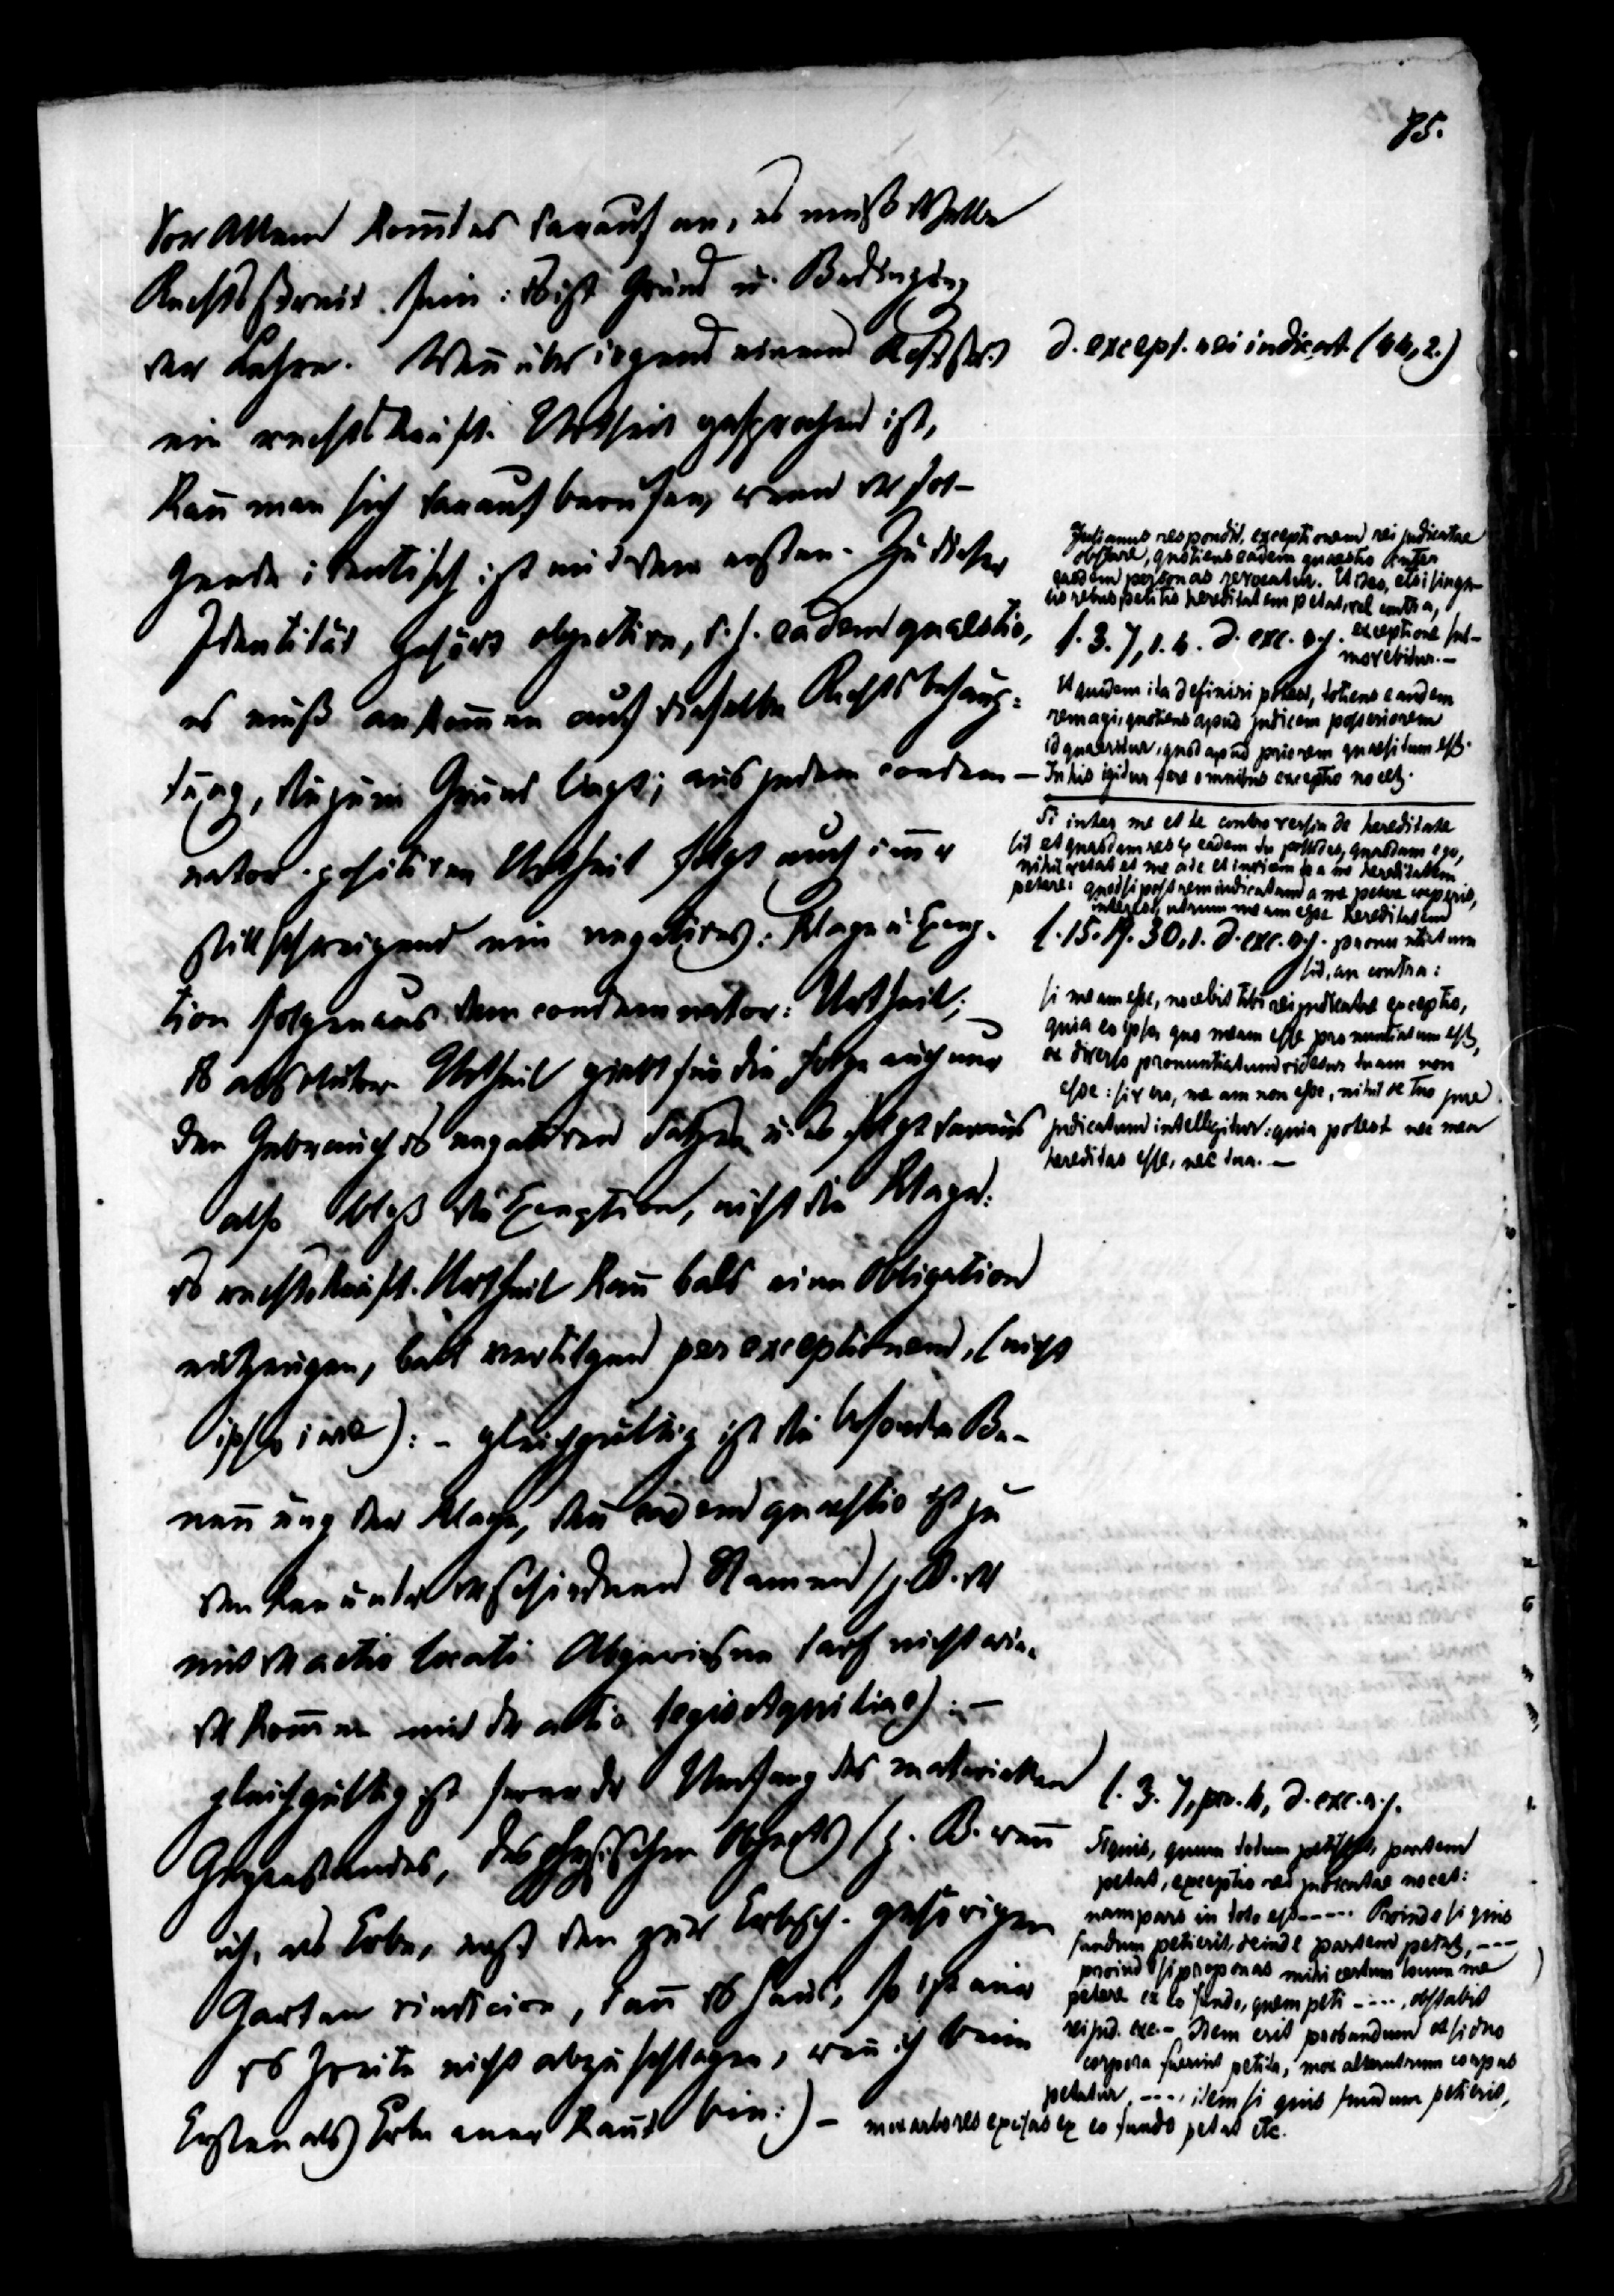 85.
Vor Allem kom̅t es darauf an, es muß derselbe
Rechtsstreit sein: ds ist Grund u. Bedingung
der Lehre. Wen̅ über irgend einen Rechtsstreit
ein rechtskräft. Urtheil gesprochen ist,
kan̅ man sich darauf berufen, wenn der fol-
gende identisch ist mit dem ersten. Zu dieser
Identität gehört objective, d. h. eadem quaestio,
es muß ankom̅en auf dieselbe Rechtsbehaup-
tung, die zum Grund liegt; aus jedem condem-
nator. positiven Urtheil folgt auch im̅er
stillschweigend ein negatives: Klage u. Excep-
tion folgen aus dem condemnator. Urtheil;
ds absolutor. Urtheil giebt für die Folge auch nur
den Gebrauch ds negativen Satzes u. es folgt daraus
also bloß die Exception, nicht die Klage:
ds rechtskräft. Urtheil kan̅ bald eine Obligation
erzeugen, bald vertilgen per exceptionem, (nicht
ipso iure): - gleichgültig ist die besondre Be-
nen̅ung der Klage, den̅ eadem quaestio ist zu
den kan̅ unter verschiednen Namen (z. B. der
mit der actio locati Abgewiesne darf nicht wie-
der kom̅en mit der actio legis Aquiliae): -
gleichgültig ist ferner der Umfang des materiellen
Gegenstandes, des physischen Objects (z. B. wen̅
ich, als Erbe, erst den zur Erbsch. gehörigen
Garten vindicire, dan̅ ds Haus, so ist mir
ds Zweite nicht abzuschlagen, wen̅ ich beim
Ersten als Erbe anerkan̅t bin:) -
D. except. rei iudicat. (44, 2.)
Julianus respondit, exceptionem rei judicatae
obstare, quotiens eadem quaestio inter
easdem personas revocatur. Et ideo, etsi singu-
lis rebus petitis hereditatem petat, vel contra,
l. 3. 7, 1. 4. D. exc. r. j. exceptione sum-
movebitur. -
Et quidem ita definiri potest, totiens eandem
rem agi, quotiens apud judicem posteriorem
id quaeritur, quod apud priorem quaesitum est.
In his igitur fere omnibus exceptio nocet.
Si inter me et te controversia de hereditate
sit et quasdam res ex eadem tu possides, quasdam ego,
nihil vetat et me a te et invicem te a me hereditatem
petere: quodsi post rem iudicatam a me petere coeperis,
interest, utrum meam esse hereditatem
l. 15. 19. 30, 1. D. exc. r. j. pronuntiatum
sit, an contra:
si meam esse, nocebit tibi rei judicatae exceptio,
quia eo ipso, quo meam esse pronuntiatum est,
ex diverso pronuntiatum videtur tuam non
esse: si vero, meam non esse, nihil de tuo jure
judicatum intelligitur: quia potest nec mea
hereditas esse, nec tua. -
l. 3. 7, pr. 4, D. exc. r. j.
Siquis, quum totum petisset, partem
petat, exceptio rei judicatae nocet:
nam pars in toto est ----- Proinde si quis
fundum petierit, deinde partem petat, ---
proinde si proponas mihi certum locum me
petere ex eo fundo, quem peti ----, obstabit
rei jud. exc. - Idem erit probandum et si duo
corpora fuerint petita, mox alterutrum corpus
petatur, ----, item si quis fundum petierit,
mox arbores excisas ex eo fundo petat etc.